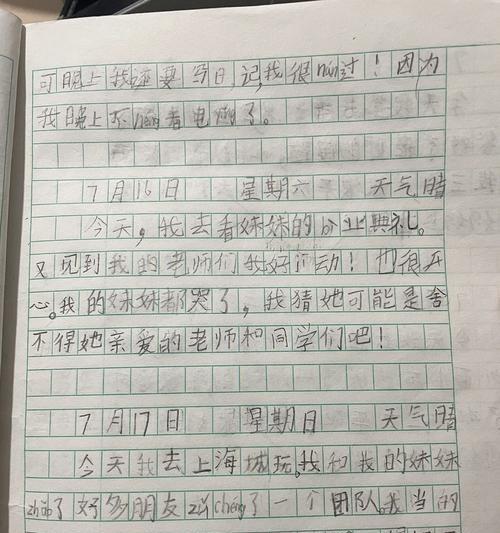 可晚上我还要写日记,我很nán过！因为
我晚上不néng看电视了。
7月16日 星期六 天气晴
今天,我去看妹妹的bì业典礼。
又见到我的老师们我好激动！也很开
心。我的妹妹都哭了,我猜她可能是舍
不得她亲爱的老师和同学们吧！
7月17日 星期日 天气晴
今天我去上海城玩,我和我的妹妹
zhǎo了好多朋友zǔ chéng了一个团队。我当的